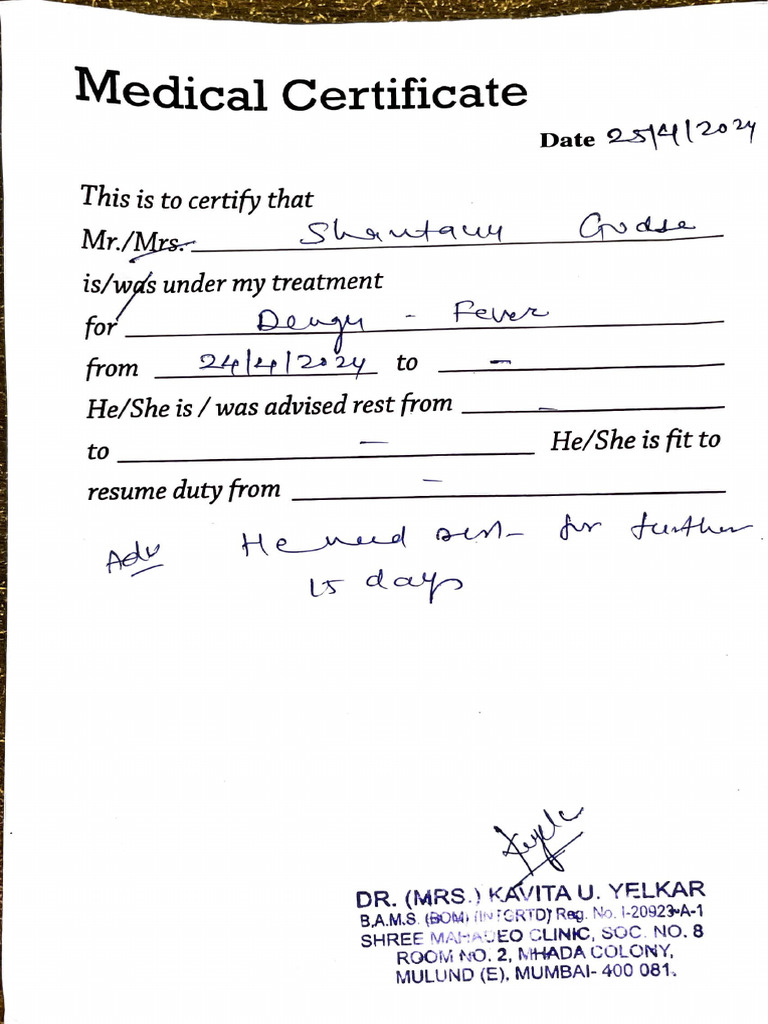 Medical Certificate
Date 25/4/2024
This is to certify that
Mr./Mrs. Shantanu Godse
is/was under my treatment
for Dengu - Fever
from 24/4/2024 to -
He/She is / was advised rest from -
to - He/She is fit to
resume duty from -
Adv He need rest for further
15 days
DR. (MRS.) KAVITA U. YELKAR
B.A.M.S. (BOM) Reg. No. I-20923-A-1
SHREE MAHADEO CLINIC, SOC. NO. 8
ROOM NO. 2, MHADA COLONY,
MULUND (E), MUMBAI- 400 081.